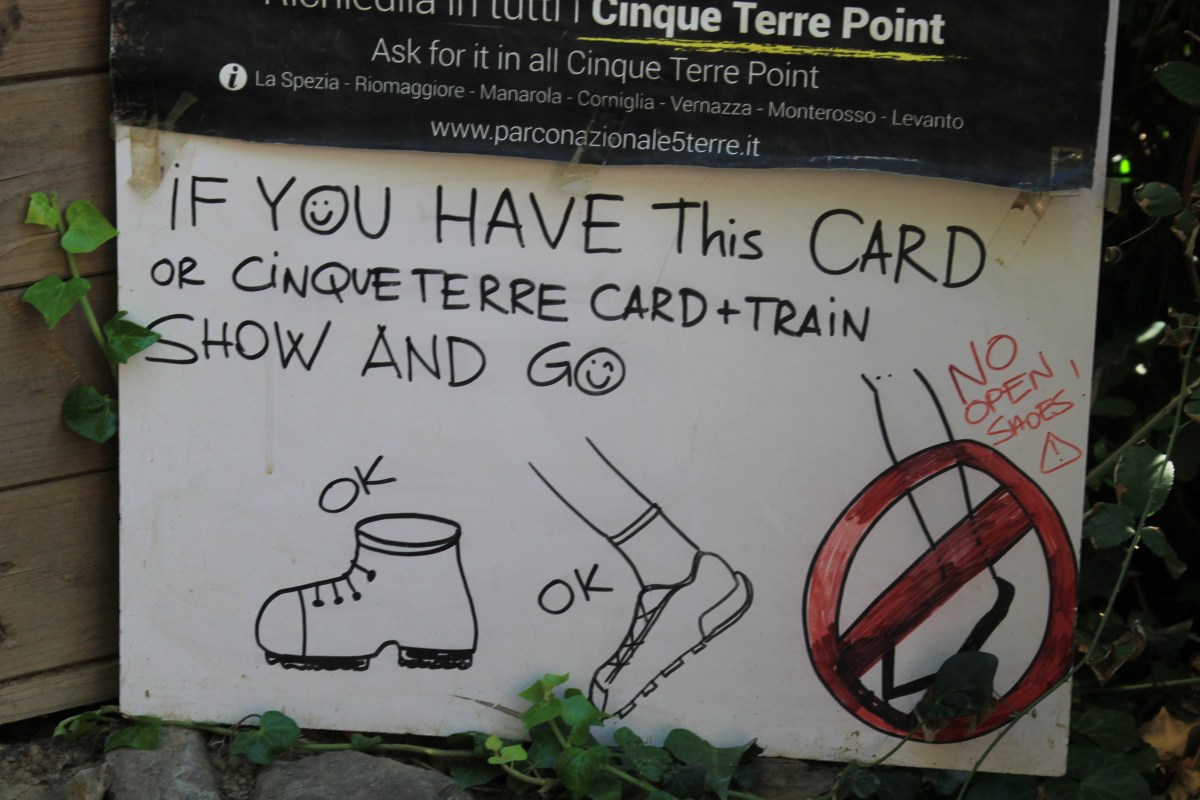 Richiedila in tutti i Cinque Terre Point
Ask for it in all Cinque Terre Point
i La Spezia - Riomaggiore - Manarola - Corniglia - Vernazza - Monterosso - Levanto
www.parconazionale5terre.it
iF YOU HAVE This CARD
OR CiNQUE TERRE CARD+TRAiN
SHOW AND GO
NO
OPEN
SHOES!
!
OK
OK